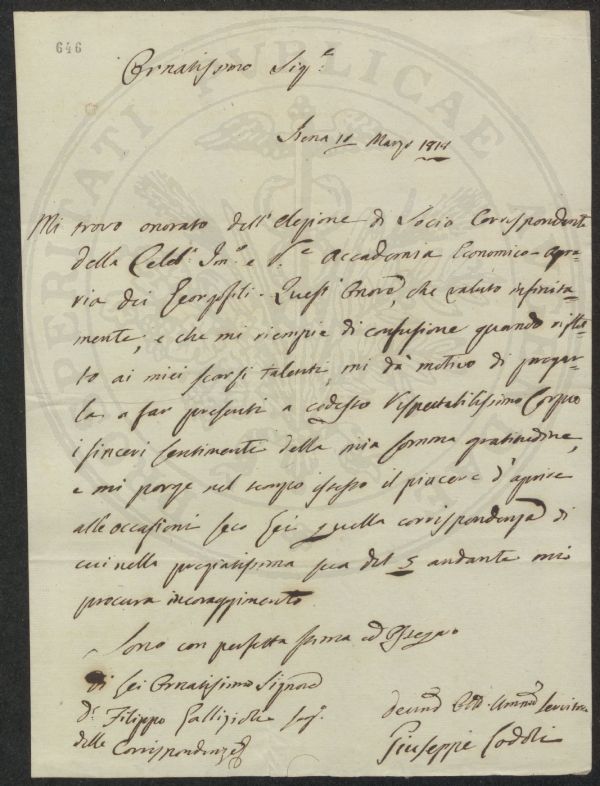 646
Ornatissimo Sig.e
Siena 10 Marzo 1818
Mi trovo onorato dell'elezione di Socio Corrispondente
della Celeb.e Im.e e R.e Accademia Economico-agra-
ria dei Georgofili. Quest'onore, che valuto infinita-
mente, e che mi riempie di confusione quando riflet-
to ai miei scarsi talenti, mi dà motivo di pregar-
la a far presenti a codesto Rispettabilissimo Corpo
i sinceri sentimenti della mia somma gratitudine,
e mi porge nel tempo istesso il piacere d'aprire
all'occasioni seco Lei quella corrispondenza di
cui nella pregiatissima sua del 5 andante mi
procura incoraggimento.
Sono con perfetta stima ed Ossequio
Di Lei Ornatissimo Signore
D.e Filippo Gallizioli Seg.
delle Corrispondenze
Servitore
Giuseppe
PROSPERITATI PUBLICAE